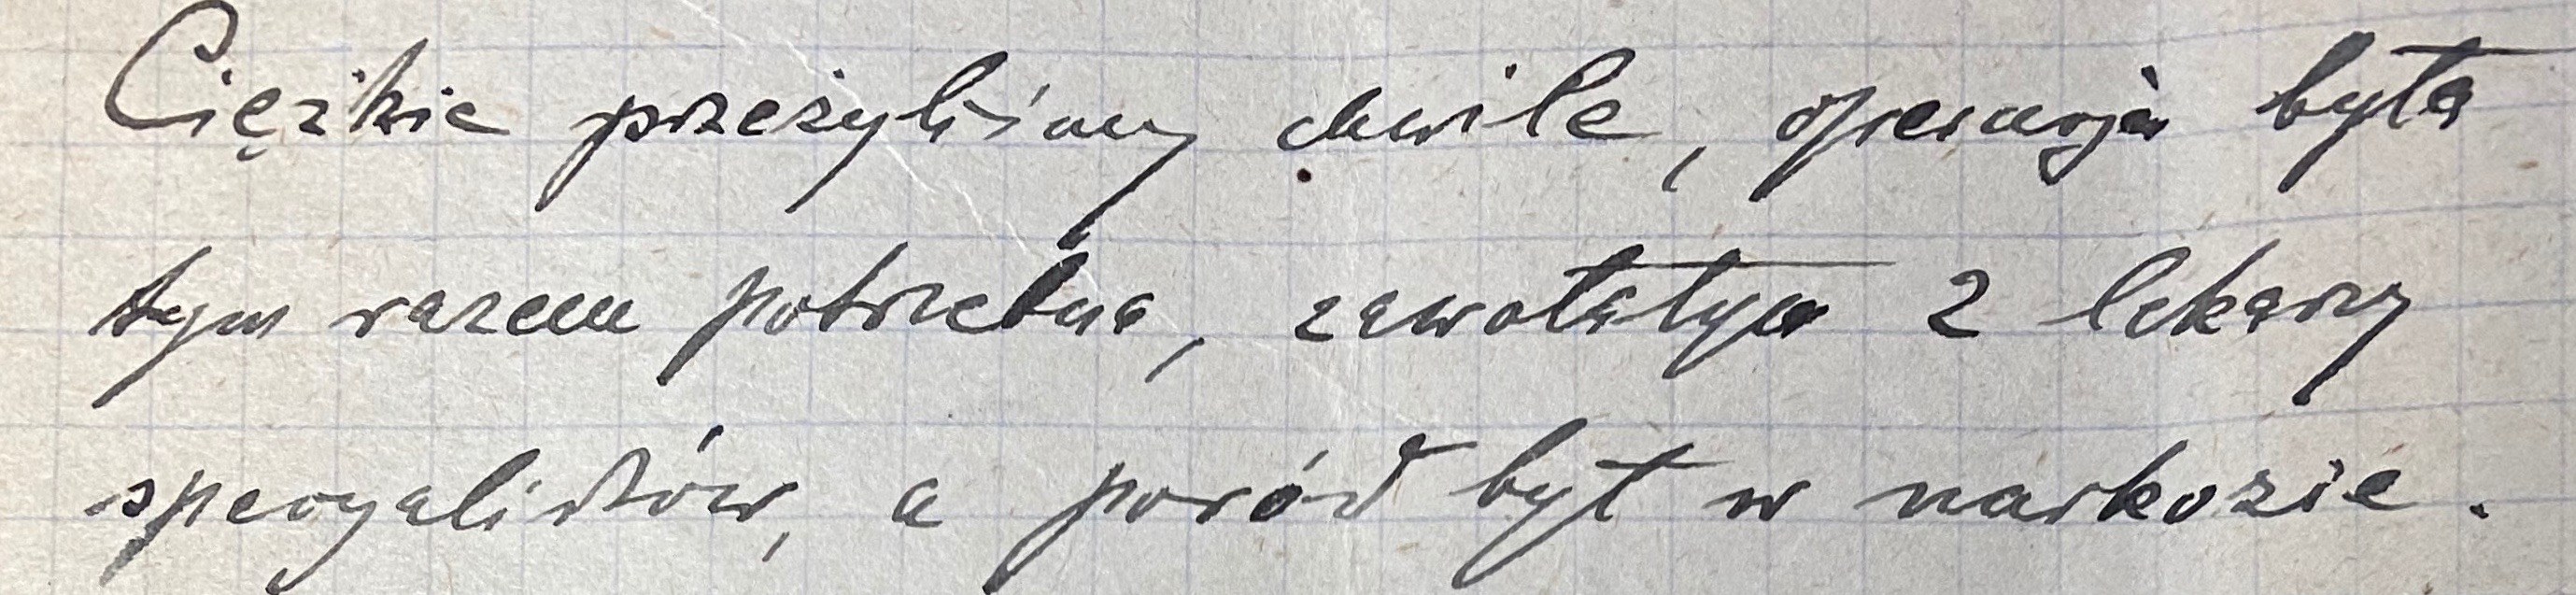 Ciężkie przeżyliśmy chwile, operacja była
tym razem potrzebna, zawołałym 2 lekarzy
specyalistów, a poród był w narkozie.